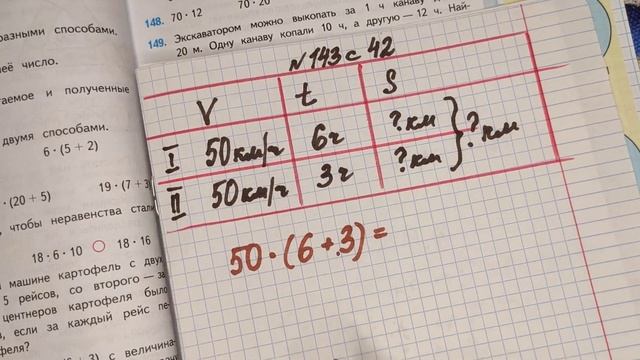 148. 70 · 12
70 · 20
149. Экскаватором можно выкопать за 1 ч канаву
20 м. Одну канаву копали 10 ч, а другую — 12 ч. Най-
разными способами.
число.
и полученные
двумя способами.
6 · (5 + 2)
· (20 + 5)
19 · (7 + 3
, чтобы неравенства стали
18 · 6 · 10 ○ 18 · 16
машине картофель с двух
5 рейсов, со второго — за
центнеров картофеля было
, если за каждый рейс пе-
феля?
+ 3) с величина-
№143 с 42
V t S
I 50км/ч 6ч ?км
?км
II 50км/ч 3ч ?км
50 · (6 + 3) =